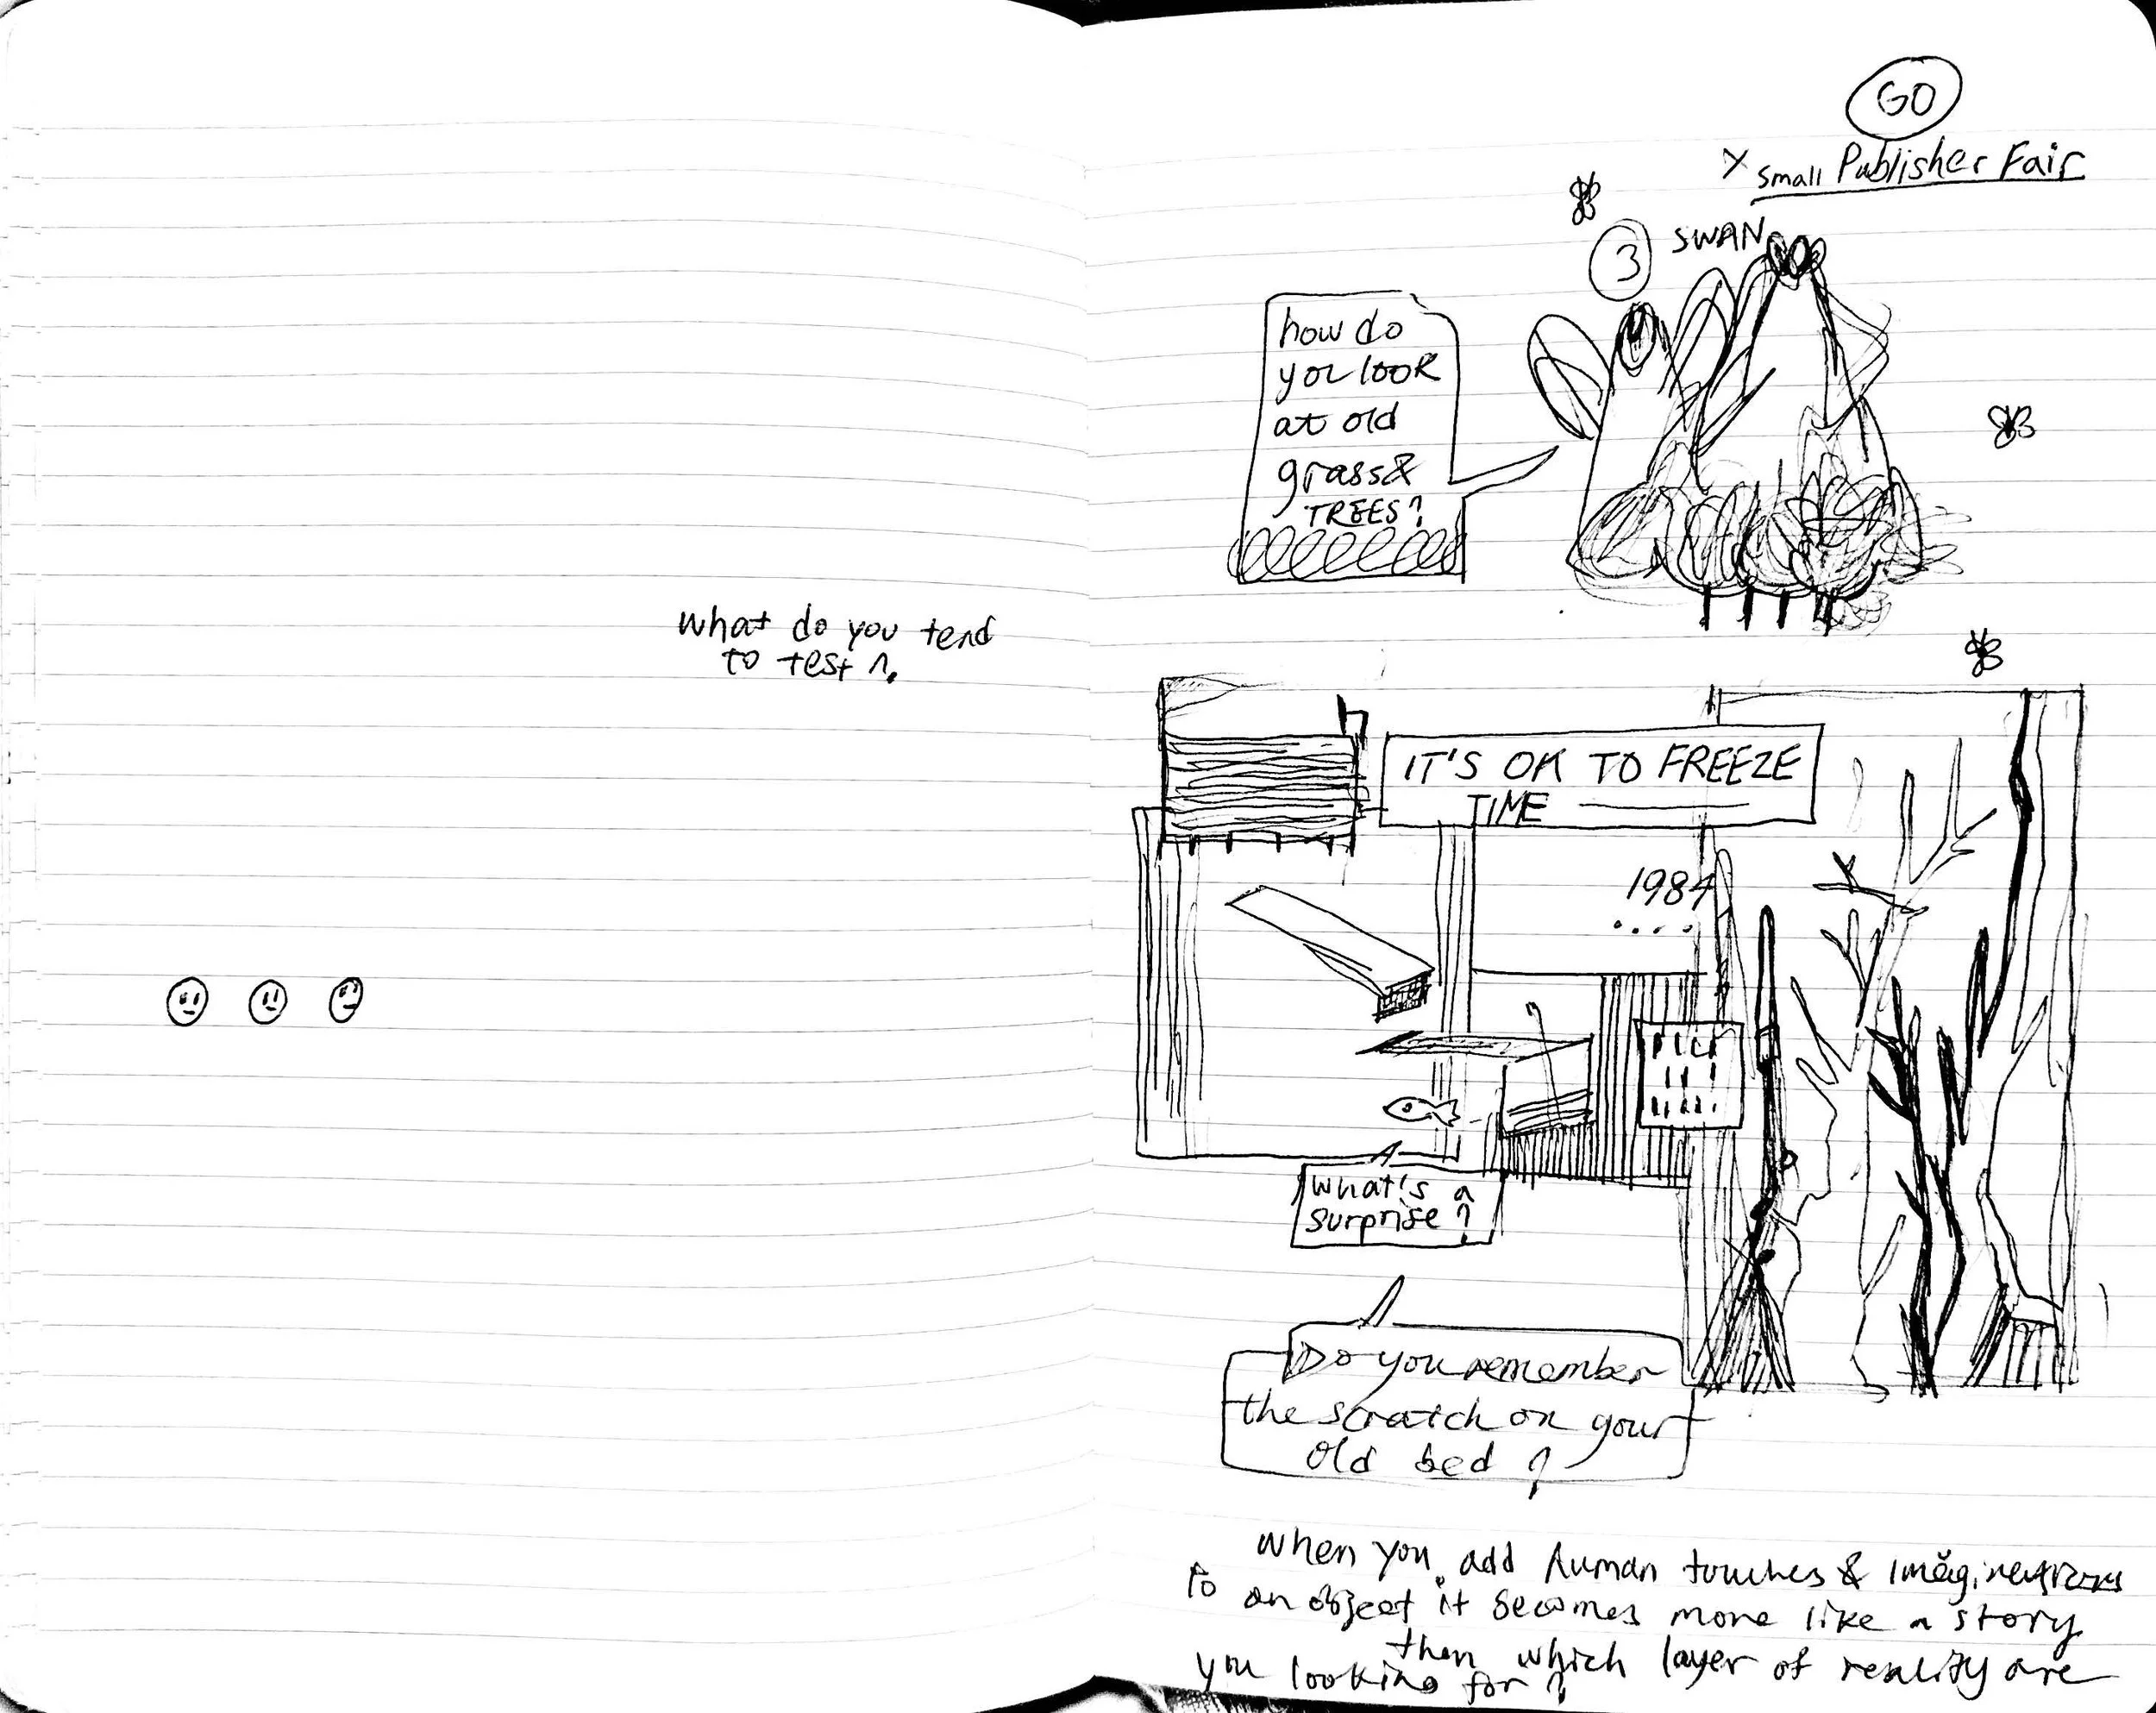 What do you tend
to test?
GO
x small Publisher Fair
3
SWAN
how do
you look
at old
grass&
TREES?
IT'S OK TO FREEZE
TIME
1984
....
What's a
surprise?
Do you remember
the scratch on your
old bed?
When you add human touches & imaginations
to an object it becomes more like a story
then which layer of reality are
you looking for?